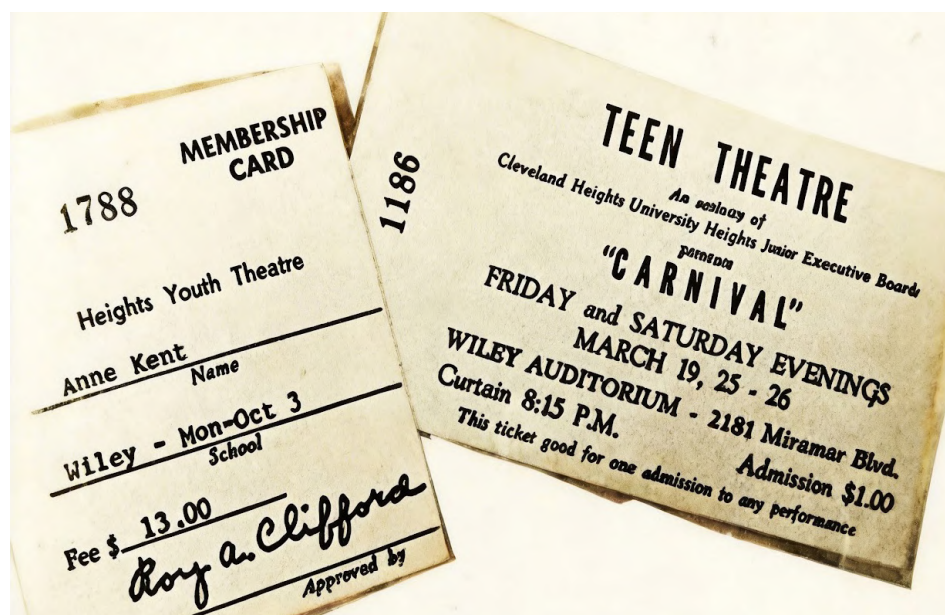 MEMBERSHIP
CARD
1788
Heights Youth Theatre
Anne Kent
Name
Wiley - Mon-Oct 3
School
Fee $ 13.00
Roy A. Clifford
Approved by
1186
TEEN THEATRE
An of
Cleveland Heights University Heights Junior Executive Boards
"CARNIVAL"
FRIDAY and SATURDAY EVENINGS
MARCH 19, 25 - 26
WILEY AUDITORIUM - 2181 Miramar Blvd.
Curtain 8:15 P.M.
Admission $1.00
This ticket good for one admission to any performance